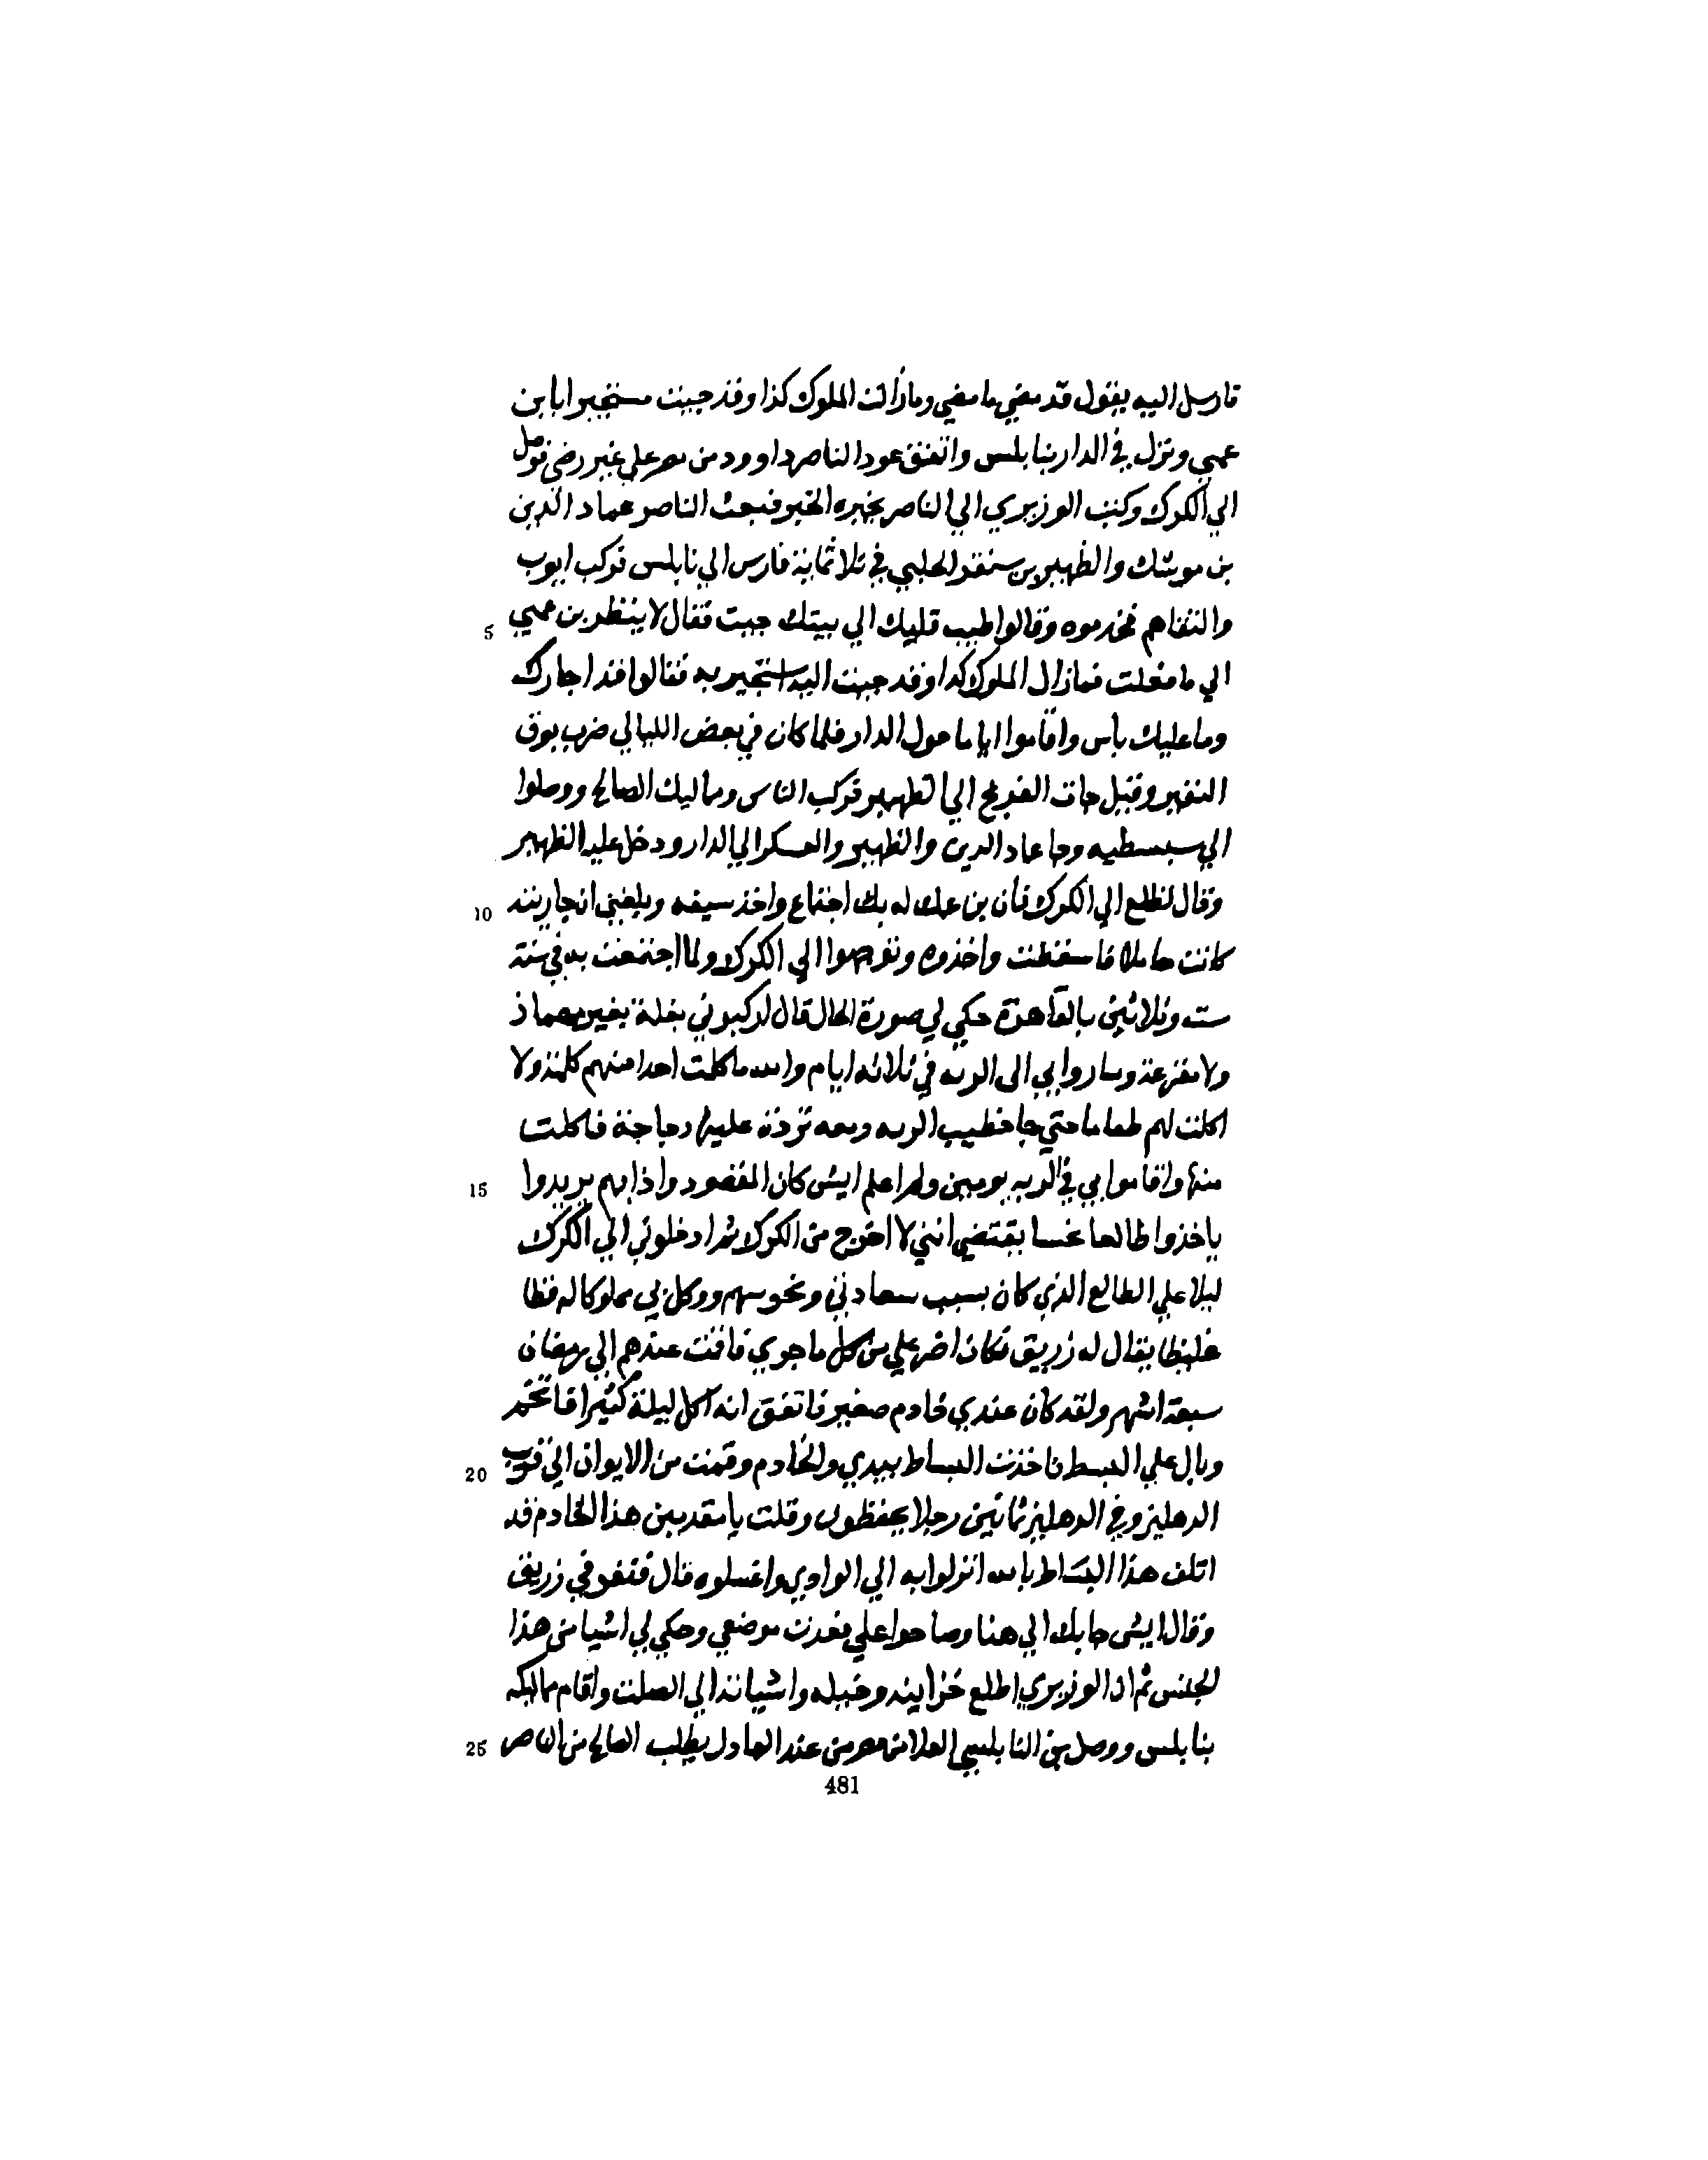 فارسل اليه يقول قد مضي ما مضي وما زالت الملوك كذا وقد جيت مستجيرا بابن
عمي ونزل في الدار بنابلس واتفق عود الناصر داوود من مصر علي غير رضي فوصل
الي الكرك وكتب الوزيري الي الناصر يخبره الخبر فبعث الناصر عماد الدين
بن موسك والظهير بن سنقر الحلبي في ثلاثماية فارس الي نابلس فركب ايوب
5 والتقاهم فخدموه وقالوا طيب قلبك الي بيتك جيت فقال لا ينظر بن عمي
الي ما فعلت فما زال الملوك كدا وقد جيت اليه استجير به فقالوا قد اجارك
وما عليك باس واقاموا اياما حول الدار فلما كان في بعض الليالي ضرب بوق
النفير وقيل جات الفرنج الي الظهير فركب الناس ومماليك الصالح ووصلوا
الي سبسطيه وجا عماد الدين والظهير والعسكر الي الدار ودخل عليه الظهير
10 وقال تطلع الي الكرك فان بن عمك له بك اجتماع واخذ سيفه وبلغني ان جاريته
كانت حاملا فاسقطت واخذوه وتوجهوا الي الكرك ولما اجتمعت به في سنة
ست وثلاثين بالقاهرة حكي لي صورة الحال قال اركبوني بغلة بغير مهماز
ولا مقرعة وساروا بي الى الربه في ثلاثه ايام والله ما كلمت احدا منهم كلمة ولا
اكلت لهم طعاما حتي جا خطيب الربه ومعه بردة عليها دجاجة فاكلت
15 منها واقاموا بي في الربه يومين ولم اعلم ايش كان المقصود واذا بهم يريدوا
ياخذوا طالعا نحسا يقتضي انني لا اخرج من الكرك ثم ادخلوني الي الكرك
ليلا علي الطالع الذي كان بسبب سعادتي ونحوسهم ووكل بي مملوكا له فظا
غليظا يقال له زريق فكان اضر علي من كل ما جري فاقمت عندهم الي رمضان
سبعة اشهر ولقد كان عندي خادم صغير فاتفق انه اكل ليلة كثيرا فاتخم
20 وبال علي البسط فاخذت البساط بيدي والخادم وقمت من الايوان الي قرب
الدهليز وفي الدهليز ثمانين رجلا يحفظوني وقلت يا مقدمين هذا الخادم قد
اتلف هذا البساط بالله انزلوا به الي الوادي واغسلوه قال فنفر في زريق
وقال ايش جا بك الي هنا وصاحوا علي فعدت موضعي وحكي لي اشيا من هذا
الجنس ثم ان الوزيري اطلع خزاينه وخيله واشياته الي الصلت واقام مماليكه
25 بنابلس ووصل بن النابلسي العلا من مصر من عند العادل يطلب الصالح من الناصر
481